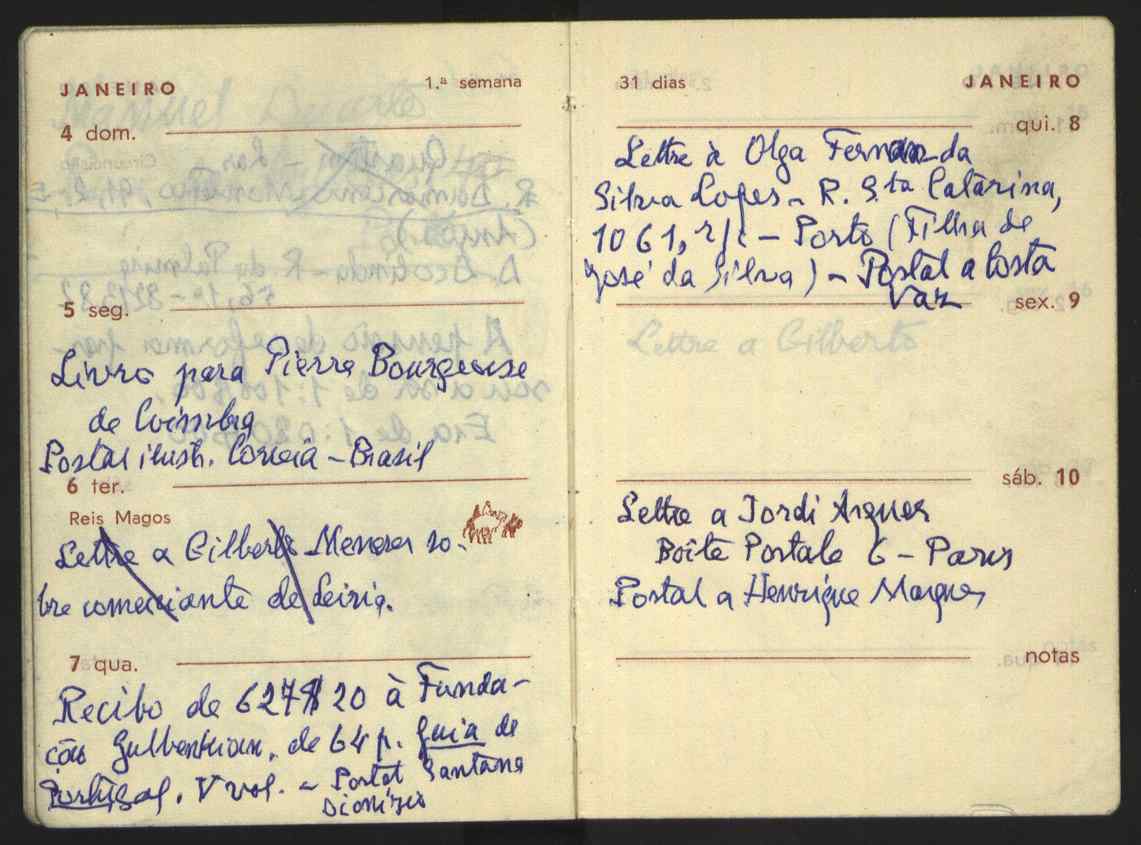 JANEIRO 1.ª semana
4 dom.
5 seg.
Livro para Pierre Bourgeoise
de Coimbra
Postal ilustr. Correia - Brasil
6 ter.
Reis Magos
Lettre a Gilberto Meneses so-
bre comerciante de Leiria.
7 qua.
Recibo de 627$20 à Funda-
ção Gulbenkian, de 64 p. Guia de
Portugal, V vol. - Postal Santana
Dionísio
31 dias JANEIRO
qui. 8
Lettre à Olga Fernan da
Silva Lopes - R. Sta Catarina,
1061, r/c - Porto (Filha de
José da Silva) - Postal a Costa
Vaz
sex. 9
Lettre a Gilberto
sáb. 10
Lettre a Jordi Arquer
Boîte Postale 6 - Paris
Postal a Henrique Marques
notas